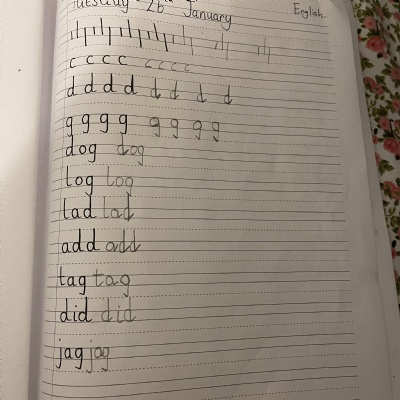 Tuesday 26 January English.
c c c c c c c c
d d d d d d d d
g g g g g g g g
dog dog
log log
lad lad
add add
tag tag
did did
jag jag